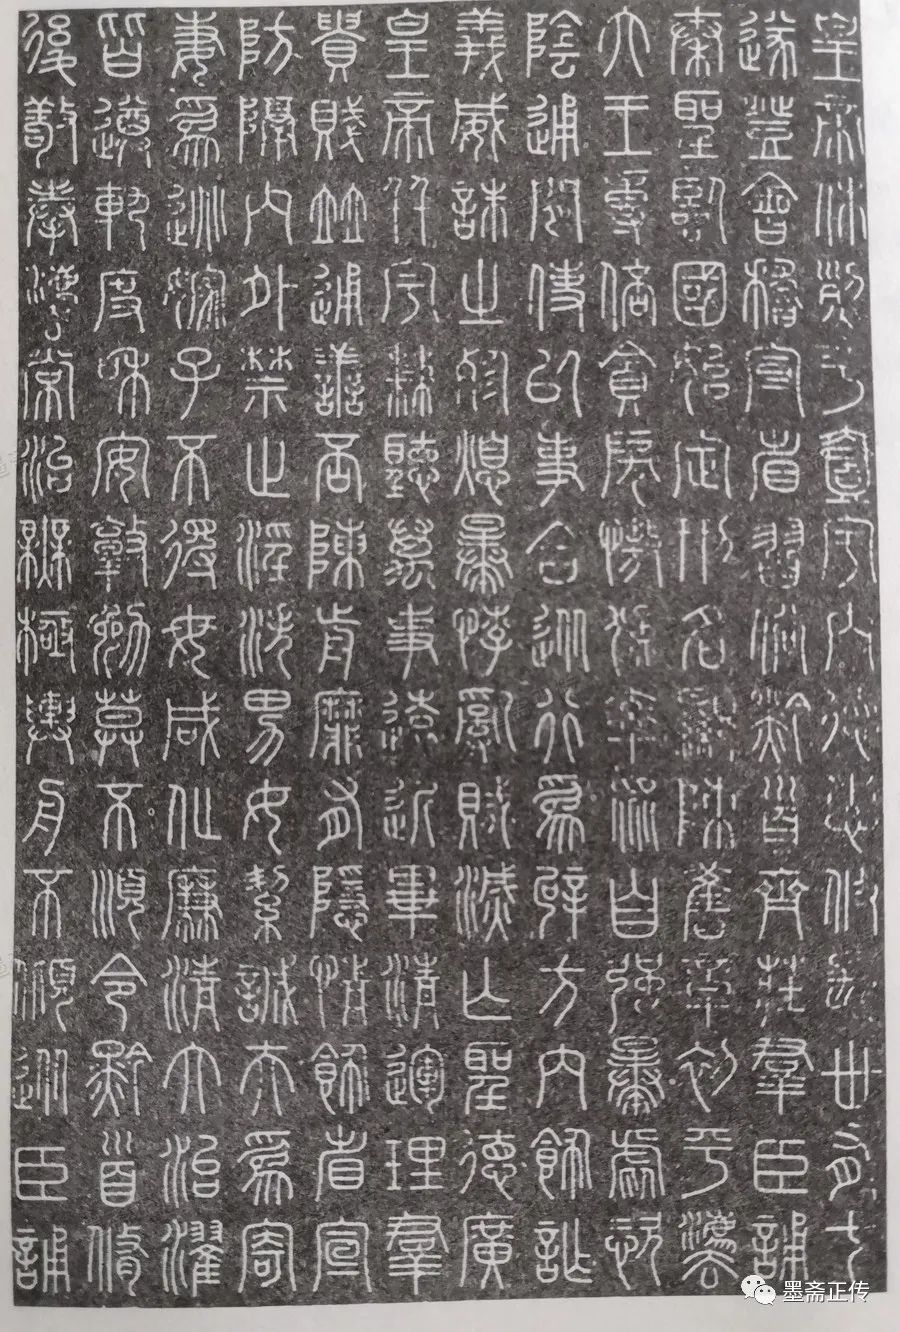 皇帝休烈平壹宇内德惠攸長丗有七
遂登會稽宣省習俗黔首齊莊羣臣誦
秦聖臨國始定刑名顯陳舊章初平灋
六王專倍貪戾慠猛率衆自強暴虐恣
陰通閒使以事合從行爲辟方内飾詐
義威誅之殄熄暴悖亂賊滅亡聖德廣
皇帝并宇兼聽萬事遠近畢清運理羣
貴賤並通善否陳前靡有隱情飾省宣
防隔内外禁止淫泆男女絜誠夫爲寄
妻爲逃嫁子不得母咸化廉清大治濯
皆遵軌度和安敦勉莫不順令黔首脩
後敬奉灋常治無極輿舟不傾從臣誦
墨斋正传